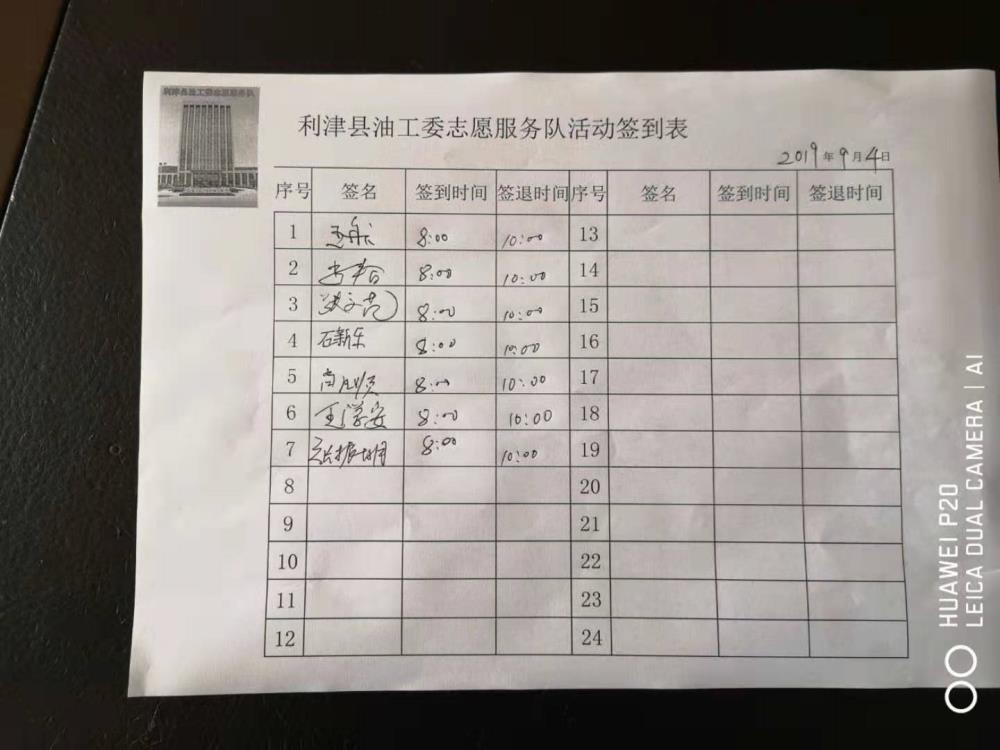 利津县油工委志愿服务队活动签到表
2019年9月4日
序号 签名 签到时间 签退时间 序号 签名 签到时间 签退时间
1 8:00 10:00 13
2 8:00 10:00 14
3 8:00 10:00 15
4 石新乐 8:00 10:00 16
5 8:00 10:00 17
6 王学安 8:00 10:00 18
7 8:00 10:00 19
8 20
9 21
10 22
11 23
12 24
HUAWEI P20
LEICA DUAL CAMERA | AI